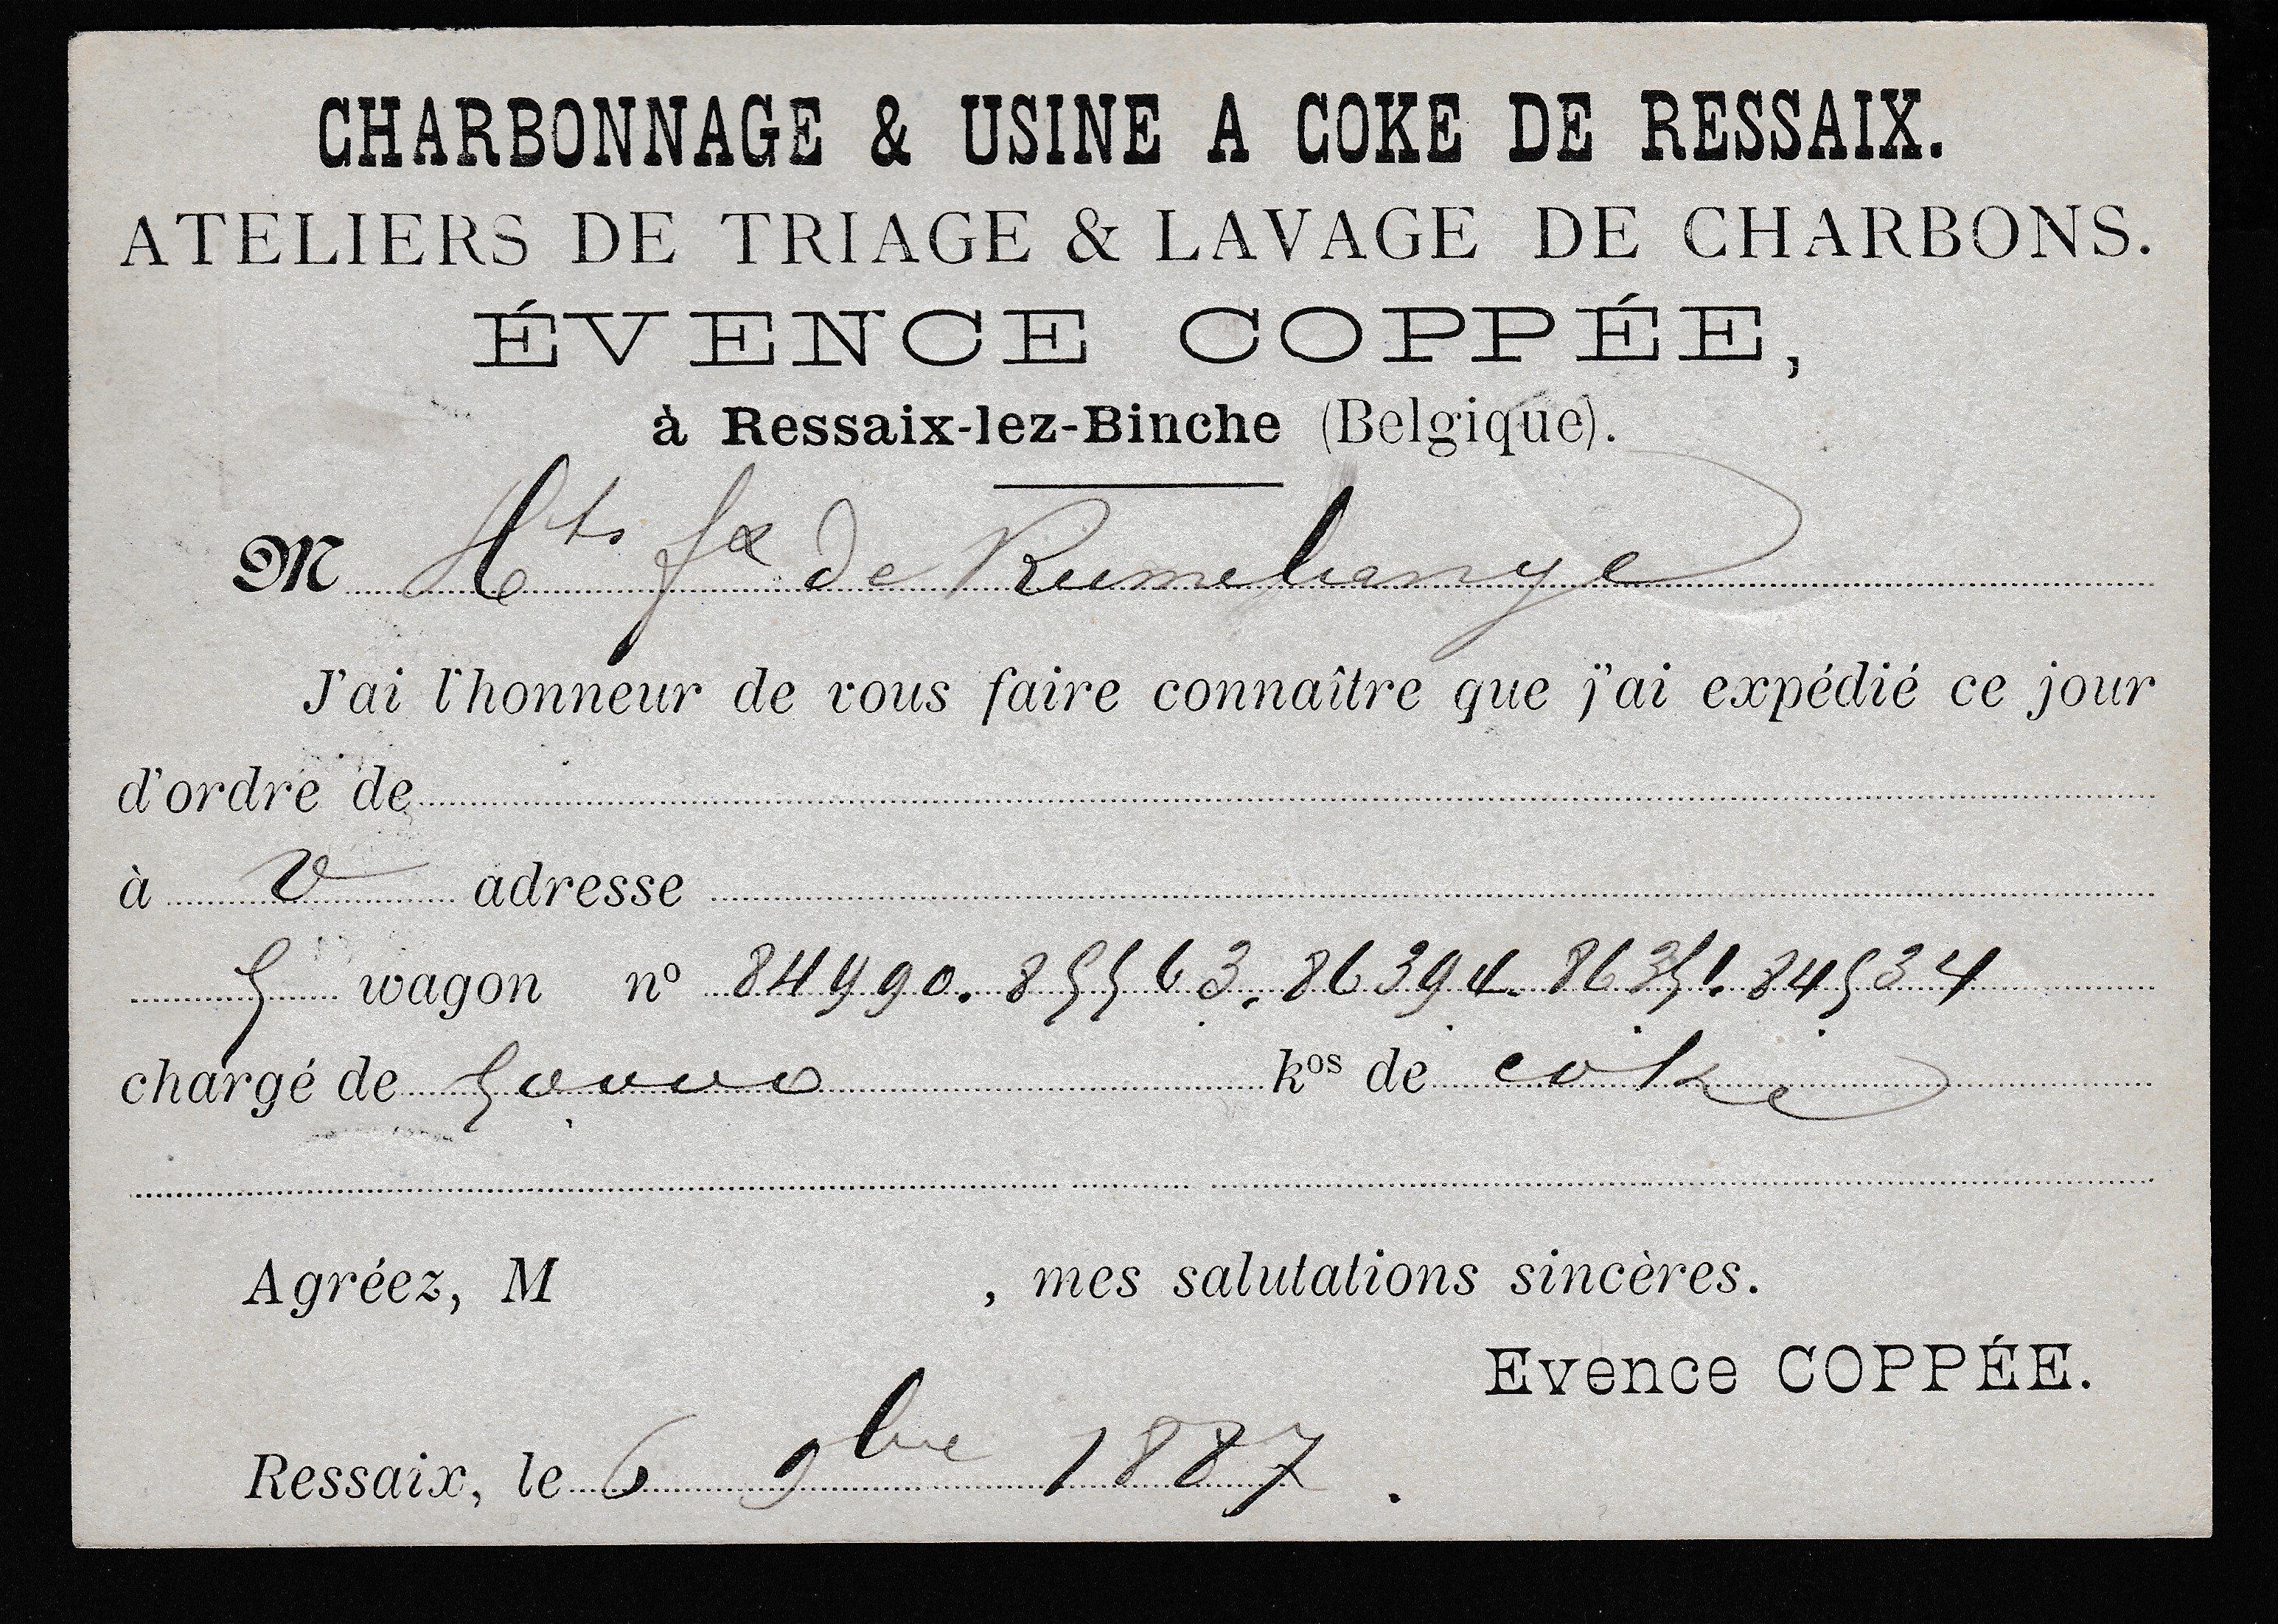 CHARBONNAGE & USINE A COKE DE RESSAIX.
ATELIERS DE TRIAGE & LAVAGE DE CHARBONS.
ÉVENCE COPPÉE,
à Ressaix-lez-Binche (Belgique).
M Hts fx de Rumelange
J'ai l'honneur de vous faire connaître que j'ai expédié ce jour
d'ordre de
à V adresse
5 wagon no 84990. 85563. 86394. 86351. 84534
chargé de 50,000 kos de coke
Agréez, M , mes salutations sincères.
Evence COPPÉE.
Ressaix, le 6 9bre 1887.